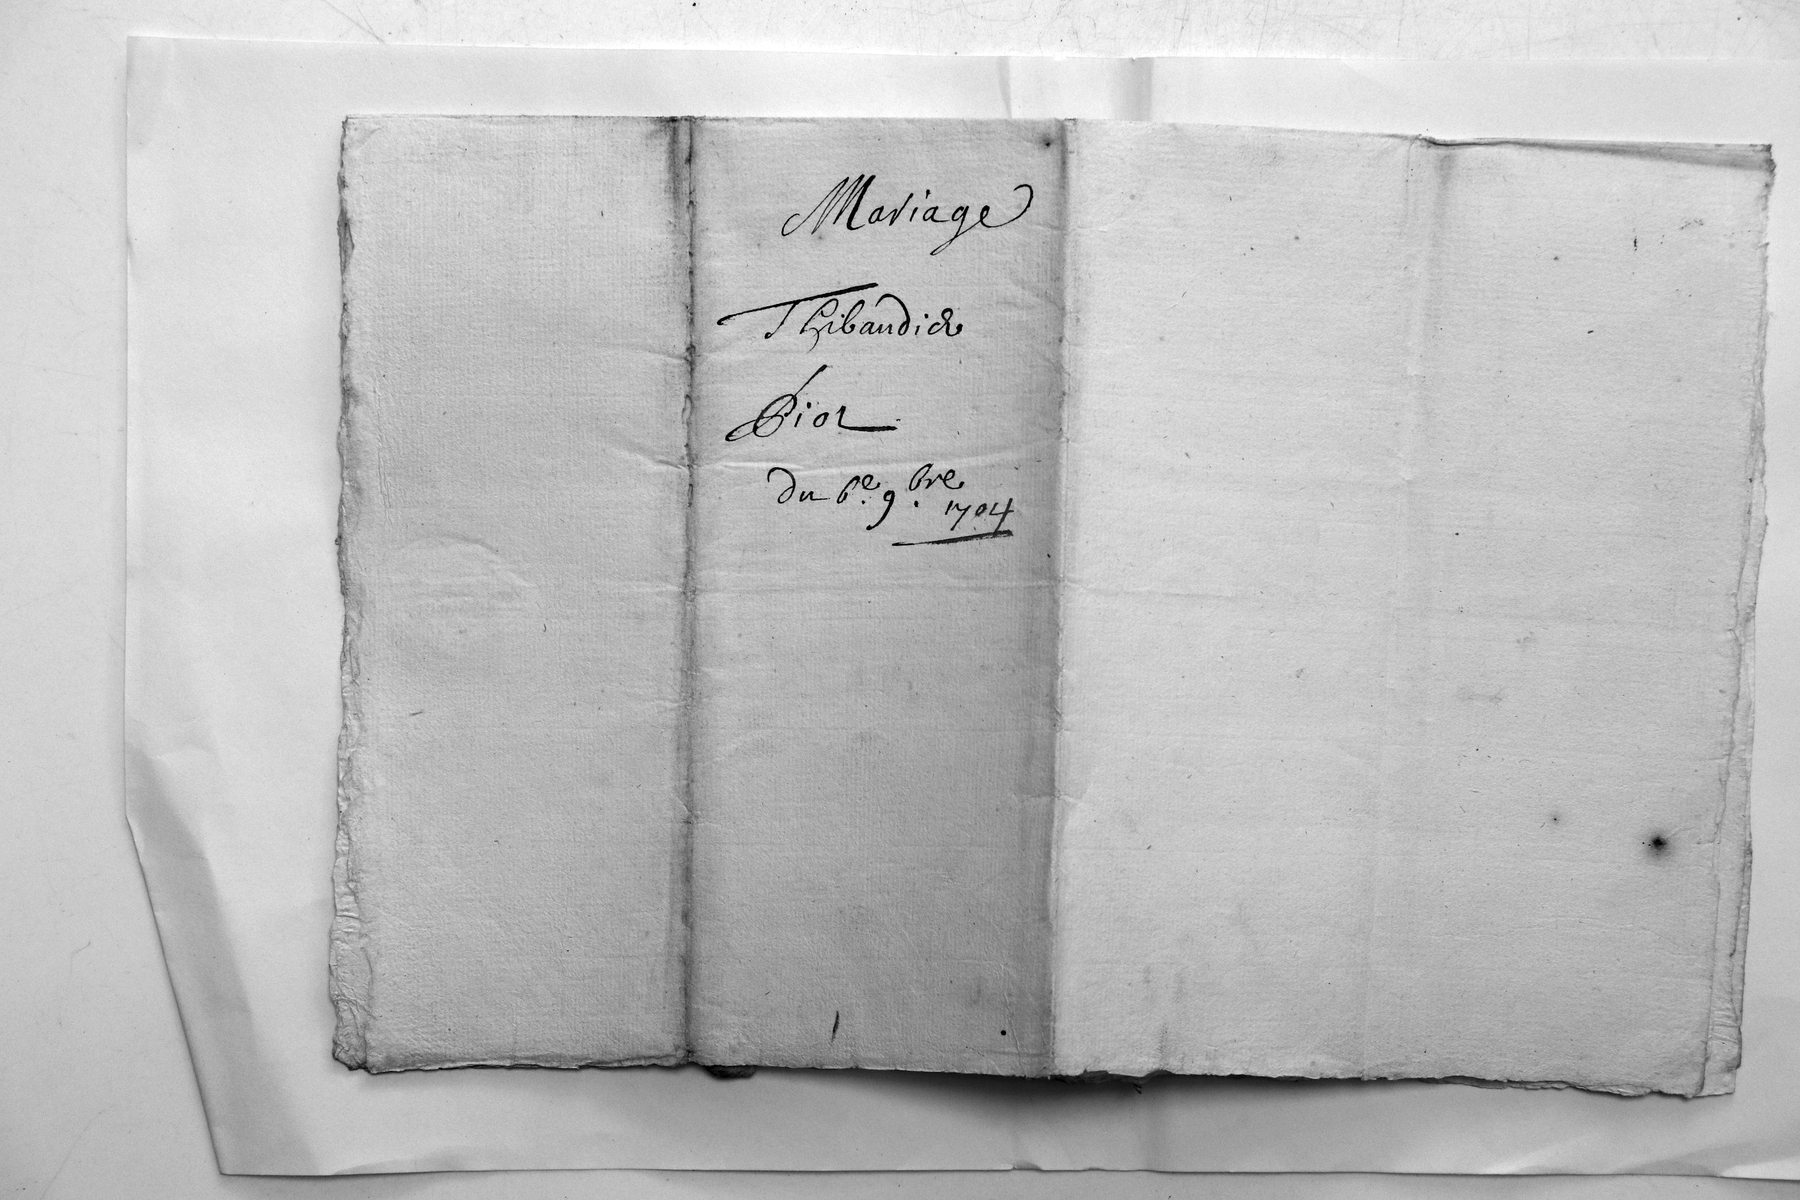 Mariage
Thibaudier
Piot
du 6e. 9.bre
1704